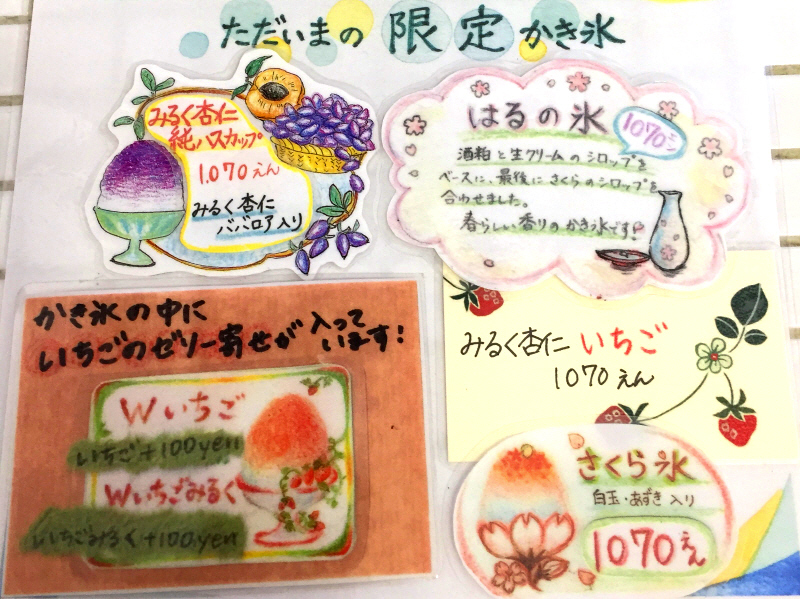 ただいまの限定かき氷
みるく杏仁
純ハスカップ
1.070えん
みるく杏仁
ババロア入り
はるの氷
1070えん
酒粕と生クリームのシロップを
ベースに、最後にさくらのシロップを
合わせました。
春らしい香りのかき氷です!
かき氷の中に
いちごのゼリー寄せが入って
います!
Wいちご
いちご+100yen
Wいちごみるく
いちごみるく+100yen
みるく杏仁いちご
1070えん
さくら氷
白玉・あずき入り
1070えん